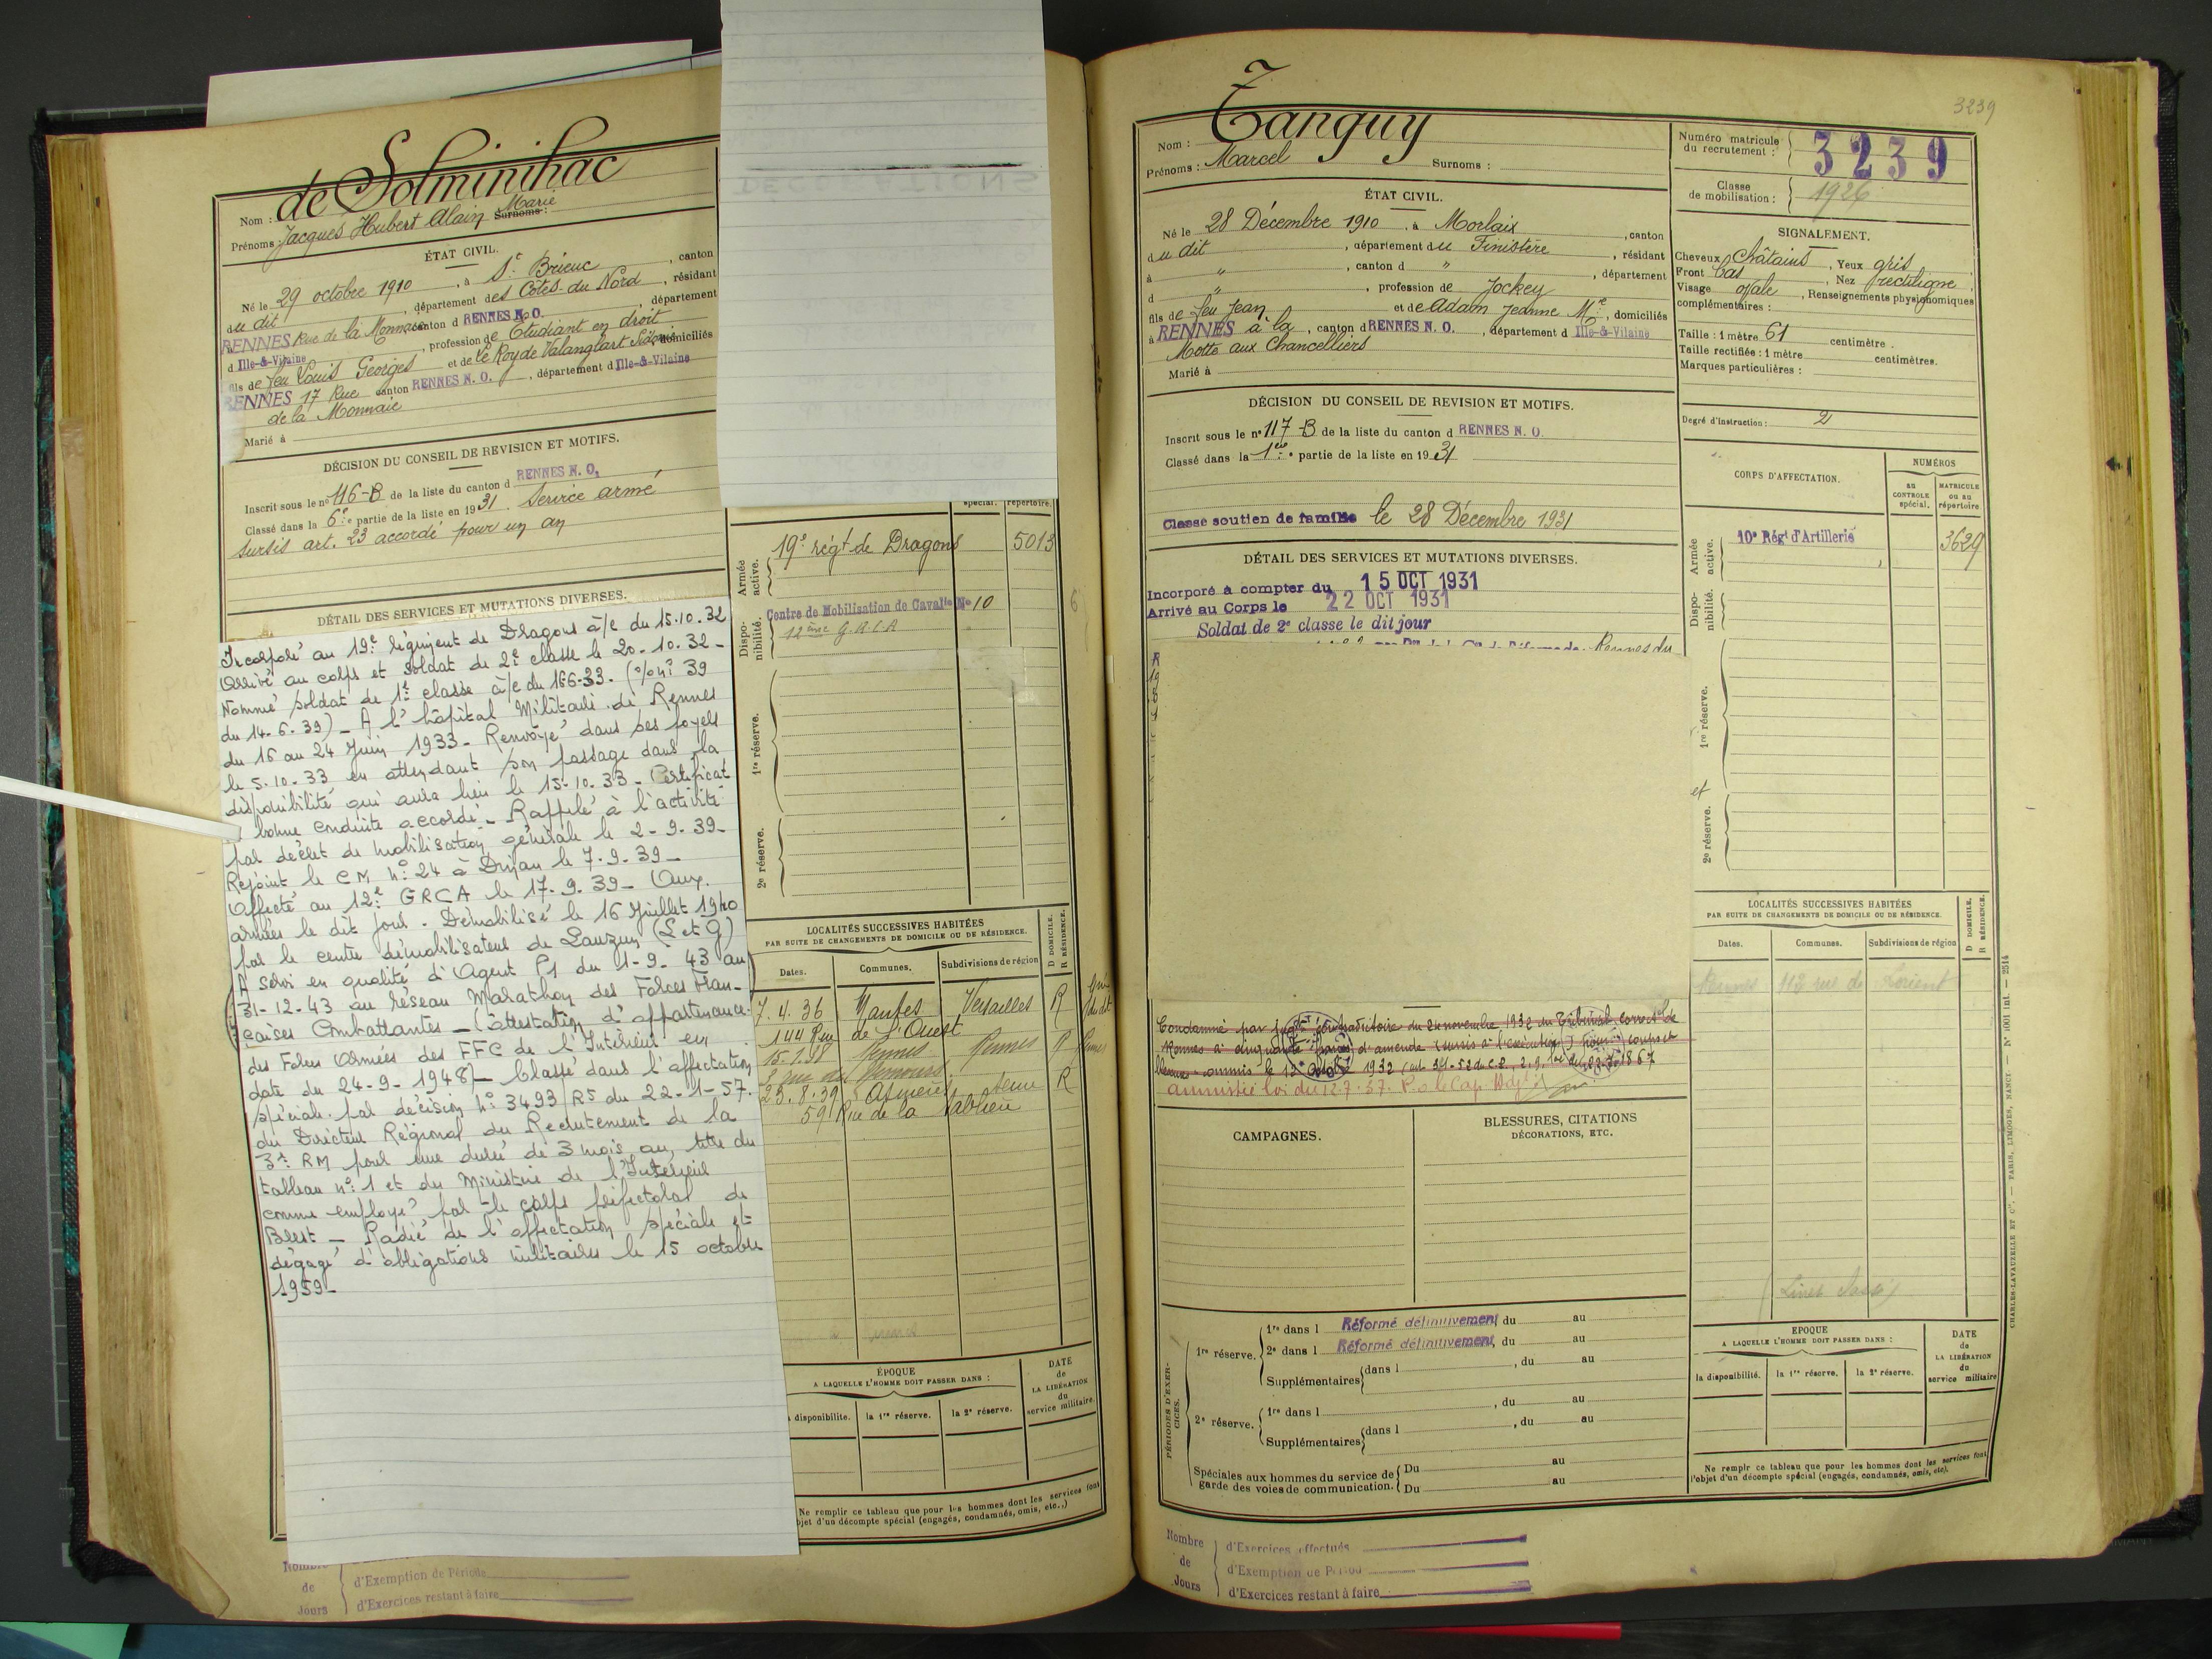 de Solminihac
Nom :
Prénoms : Jacques Hubert Alain Marie Surnoms :
ÉTAT CIVIL.
Né le 29 octobre 1910, à St Brieuc, canton
du dit, département des Côtes-du-Nord, résidant
RENNES Rue de la Monnaie canton d RENNES N.O., département
d Ille-&-Vilaine, profession de Etudiant en droit
fils de feu Louis Georges et de Le Roy de Valanglart, domiciliés
RENNES 17 Rue canton RENNES N. O., département d Ille-&-Vilaine
de la Monnaie
Marié à
DÉCISION DU CONSEIL DE REVISION ET MOTIFS.
Inscrit sous le n° 116-B de la liste du canton d RENNES N. O.
Classé dans la 6e partie de la liste en 1931. Service armé
sursis art. 23 accordé pour un an
DÉTAIL DES SERVICES ET MUTATIONS DIVERSES.
Incorporé au 19e régiment de Dragons à/c du 15.10.32
Arrivé au corps et soldat de 2e classe le 20-10-32-
Nommé soldat de 1e classe à/c du 16-6-33. (% n° 39
du 14.6.33) - A l'hôpital Militaire de Rennes
du 16 au 24 Juin 1933 - Renvoyé dans ses foyers
le 5-10-33 en attendant son passage dans la
disponibilité qui aura lieu le 15-10-33 - Certificat
bonne conduite accordé - Rappelé à l'activité
par décret de mobilisation générale le 2-9-39-
Rejoint le CM n° 24 à Dinan le 7-9-39-
Affecté au 12e GRCA le 17-9-39- Aux
armées le dit jour. Démobilisé le 16 Juillet 1940
par le centre démobilisateur de Lauzun (L et G)
A servi en qualité d'Agent P1 du 1-9-43 au
31-12-43 au réseau Marathon des Forces Fran-
çaises Combattantes - (attestation d'appartenance
des Forces Armées des FFC de l'Intérieur en
date du 24-9-1948) - Classé dans l'affectation
spéciale par décision n° 3493/RS du 22-1-57.
du Directeur Régional du Recrutement de la
3e RM pour une durée de 3 mois au titre du
tableau n° 1 et du Ministère de l'Intérieur
comme employé par le corps préfectoral de
Brest - Radié de l'affectation spéciale et
dégagé d'obligations militaires le 15 octobre
1959-
spécial. répertoire.
Armée active.
19e régt de Dragons 5013
Disponibilité.
Centre de Mobilisation de Cavalie No 10
12ème G.R.C.A
1re réserve.
2e réserve.
LOCALITÉS SUCCESSIVES HABITÉES
PAR SUITE DE CHANGEMENTS DE DOMICILE OU DE RÉSIDENCE.
D DOMICILE. R RÉSIDENCE.
Dates. Communes. Subdivisions de région
7.4.36 Mantes Versailles R
144 Rue de l'Ouest
Rennes Rennes R
rue de Nemours
23.8.39 Asnières Seine R
59 Rue de la Sablière
ÉPOQUE
A LAQUELLE L'HOMME DOIT PASSER DANS :
DATE de LA LIBÉRATION du service militaire.
disponibilité. la 1re réserve. la 2e réserve.
Ne remplir ce tableau que pour les hommes dont les services font
objet d'un décompte spécial (engagés, condamnés, omis, etc.,)
Nombre de Jours
d'Exemption de Période
d'Exercices restant à faire
3239
Tanguy
Nom :
Prénoms : Marcel Surnoms :
Numéro matricule du recrutement : 3239
Classe de mobilisation : 1926
ÉTAT CIVIL.
Né le 28 Décembre 1910, à Morlaix, canton
du dit, département du Finistère, résidant
à ", canton d ", département
d ", profession de Jockey
fils de feu Jean et de Adam Jeanne Mie, domiciliés
à RENNES à la, canton d RENNES N. O., département d Ille-&-Vilaine
Motte aux Chancelliers
Marié à
SIGNALEMENT.
Cheveux Châtains, Yeux gris
Front bas, Nez rectiligne,
Visage ovale, Renseignements physionomiques
complémentaires :
Taille : 1 mètre 61 centimètre.
Taille rectifiée : 1 mètre centimètres.
Marques particulières :
Degré d'instruction : 2
DÉCISION DU CONSEIL DE REVISION ET MOTIFS.
Inscrit sous le n° 117-B de la liste du canton d RENNES N. O.
Classé dans la 1re partie de la liste en 1931
Classé soutien de famille le 28 Décembre 1931
DÉTAIL DES SERVICES ET MUTATIONS DIVERSES.
Incorporé à compter du 15 OCT 1931
Arrivé au Corps le 22 OCT 1931
Soldat de 2e classe le dit jour
Rennes du
CORPS D'AFFECTATION.
NUMÉROS
AU CONTROLE spécial.
MATRICULE ou au répertoire
Armée active.
10e Régt d'Artillerie 3629
Disponibilité.
1re réserve.
et
2e réserve.
LOCALITÉS SUCCESSIVES HABITÉES
PAR SUITE DE CHANGEMENTS DE DOMICILE OU DE RÉSIDENCE.
D DOMICILE. R RÉSIDENCE.
Dates. Communes. Subdivisions de région
Rennes 112 rue de Lorient
Condamné par jugt contradictoire du 24 novembre 1932 du Tribunal correctel de
Rennes à cinquante francs d'amende (sursis à l'exécution) pour coups et
1932
amnistié loi du 12-7-37. P. o le Cap. Adjt
CAMPAGNES.
BLESSURES, CITATIONS
DÉCORATIONS, ETC.
PÉRIODES D'EXERCICES.
1re réserve.
1re dans l Réformé définitivement, du au
2e dans l Réformé définitivement, du au
Supplémentaires dans l , du au
2e réserve.
1re dans l , du au
Supplémentaires dans l , du au
Spéciales aux hommes du service de garde des voies de communication.
Du au
Du au
ÉPOQUE
A LAQUELLE L'HOMME DOIT PASSER DANS :
DATE de LA LIBÉRATION du service militaire
la disponibilité. la 1re réserve. la 2e réserve.
Ne remplir ce tableau que pour les hommes dont les services font
l'objet d'un décompte spécial (engagés, condamnés, omis, etc).
CHARLES-LAVAUZELLE ET Cie. — PARIS, LIMOGES, NANCY. — N° 1001 int. — 2514
Nombre de Jours
d'Exercices effectués
d'Exemption de Période
d'Exercices restant à faire